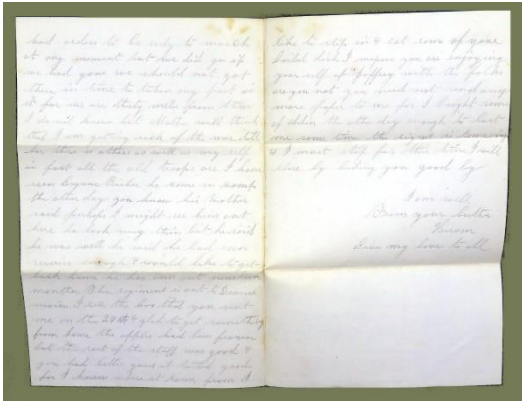 had orders to be redy to march
at any moment but we did go if
we had gone we should not got
there in time to taken any part as
it for we are thirty miles from
I don't know but Mother will think
that I am getting sick of the war tell
her there is others as well as my self
in fact all the old troops are I have
seen he came in camp
the other day you know his Mother
said perhaps I might see him out
here he look mity thin but he said
he was well he said he had seen
enough & would like to get
back home he has ben out nineteen
months The regiment is out to
I rec the box that you sent
me on the 24th & glad to get something
from home the apples had ben frozen
but the rest of the stuff was good &
you had better guess it tasted good
for I knew it came from
like to step in & eat some of your
boiled dish I suppose you are enjoying
your self up Jaffrey with the folks
are you not you need not send any
more paper to me for I bought some
the other day enough to last
me some time the
& I must stop for this time I will
close by biding you good by
I am well
From your
Hiram
Give my love to all